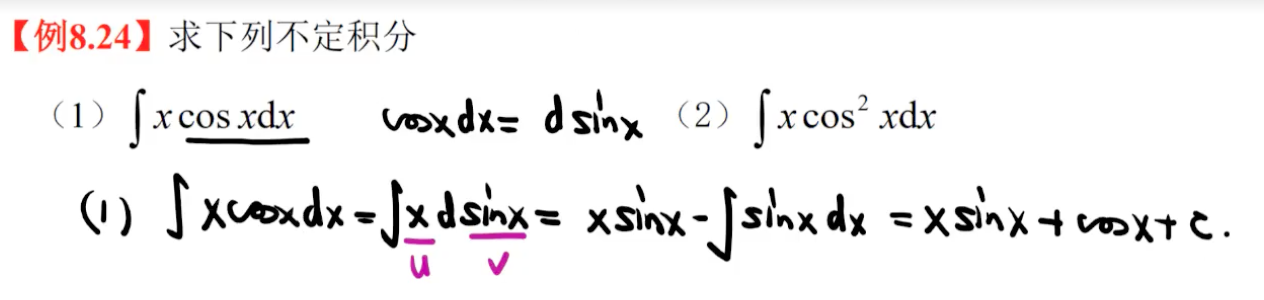 【例8.24】求下列不定积分
（1）∫x cos xdx cosxdx= dsinx （2）∫x cos² xdx
(1) ∫xcosxdx=∫xdsinx= xsinx-∫sinxdx =xsinx+cosx+c.
u v